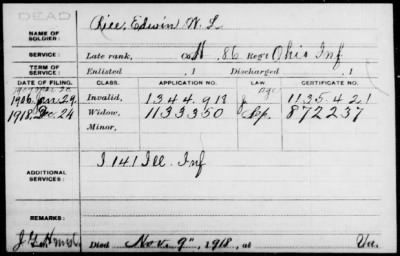 DEAD
NAME OF SOLDIER: Rice, Edwin W. L
SERVICE: Late rank, Co H, 86 Reg't Ohio Inf
TERM OF SERVICE: Enlisted , 1 Discharged , 1
DATE OF FILING. CLASS. APPLICATION NO. LAW. CERTIFICATE NO.
1906 Jan. 29 Invalid, 1344.918 1135.421
1918, Dec. 24 Widow, 1133350 872237
Minor,
ADDITIONAL SERVICES: I 141 Ill. Inf
REMARKS:
Died Nov. 9", 1918, at Va.